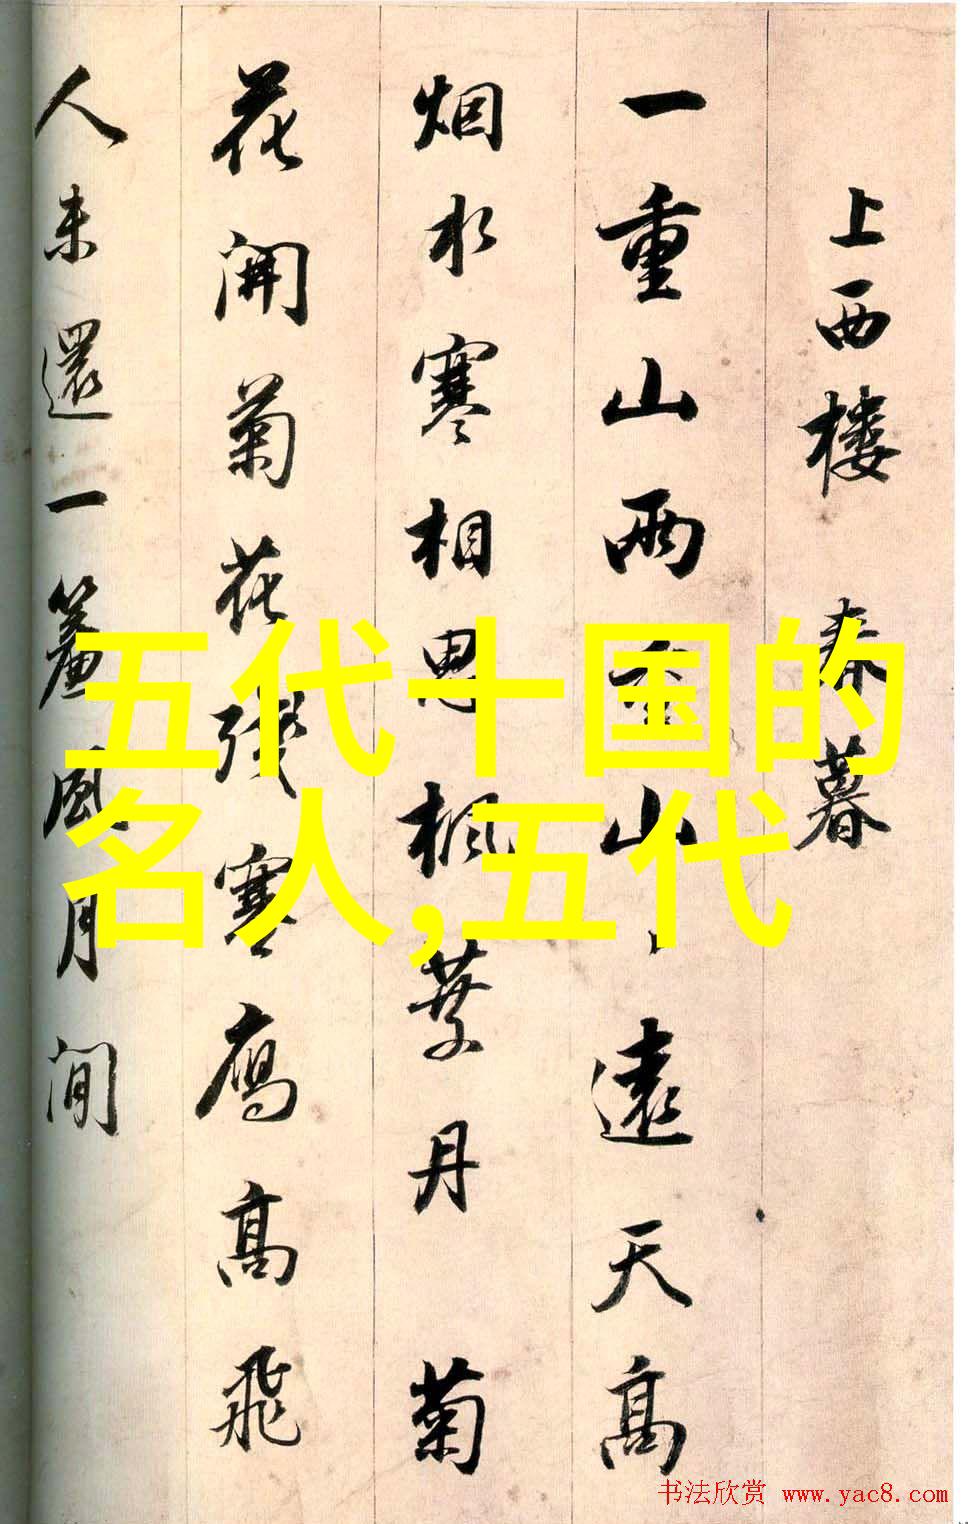 上西楼 暮
一重山兩重山、遠天高
烟水寒相思楓葉丹 菊
花開菊花殘寒鴈高飛
人未還一簾風月閒
五代十国的
名人,五代
书法欣赏 www.yac8.com